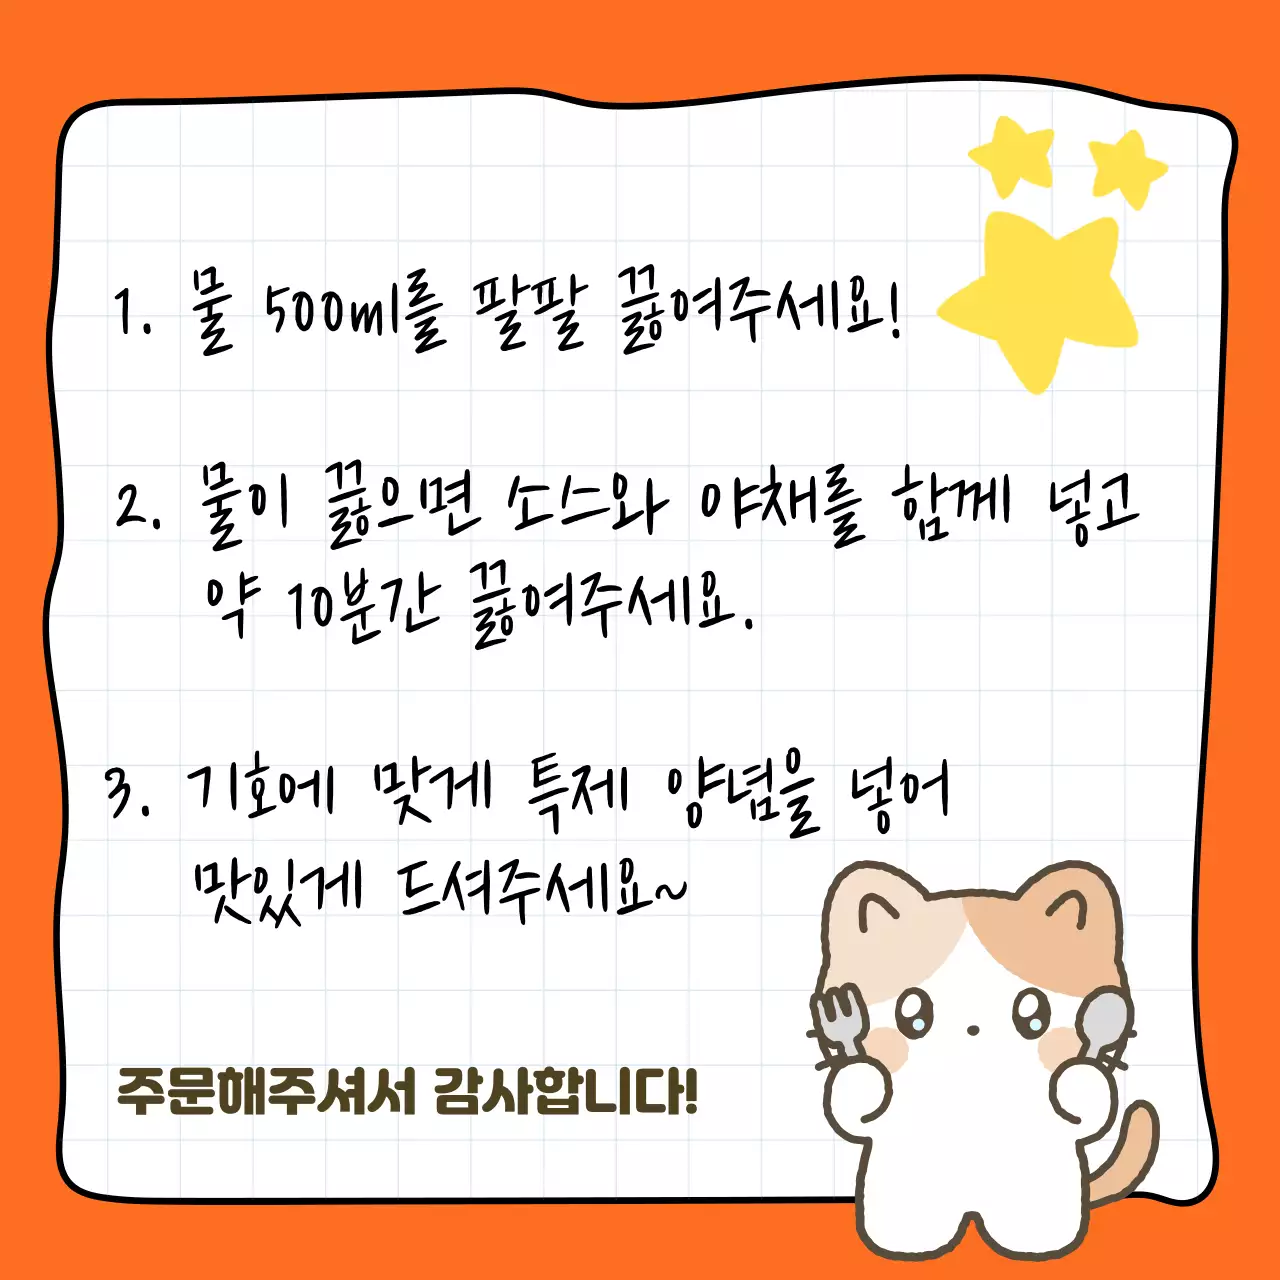 1. 물 500ml를 팔팔 끓여주세요!
2. 물이 끓으면 소스와 야채를 함께 넣고
약 10분간 끓여주세요.
3. 기호에 맞게 특제 양념을 넣어
맛있게 드셔주세요~
주문해주셔서 감사합니다!